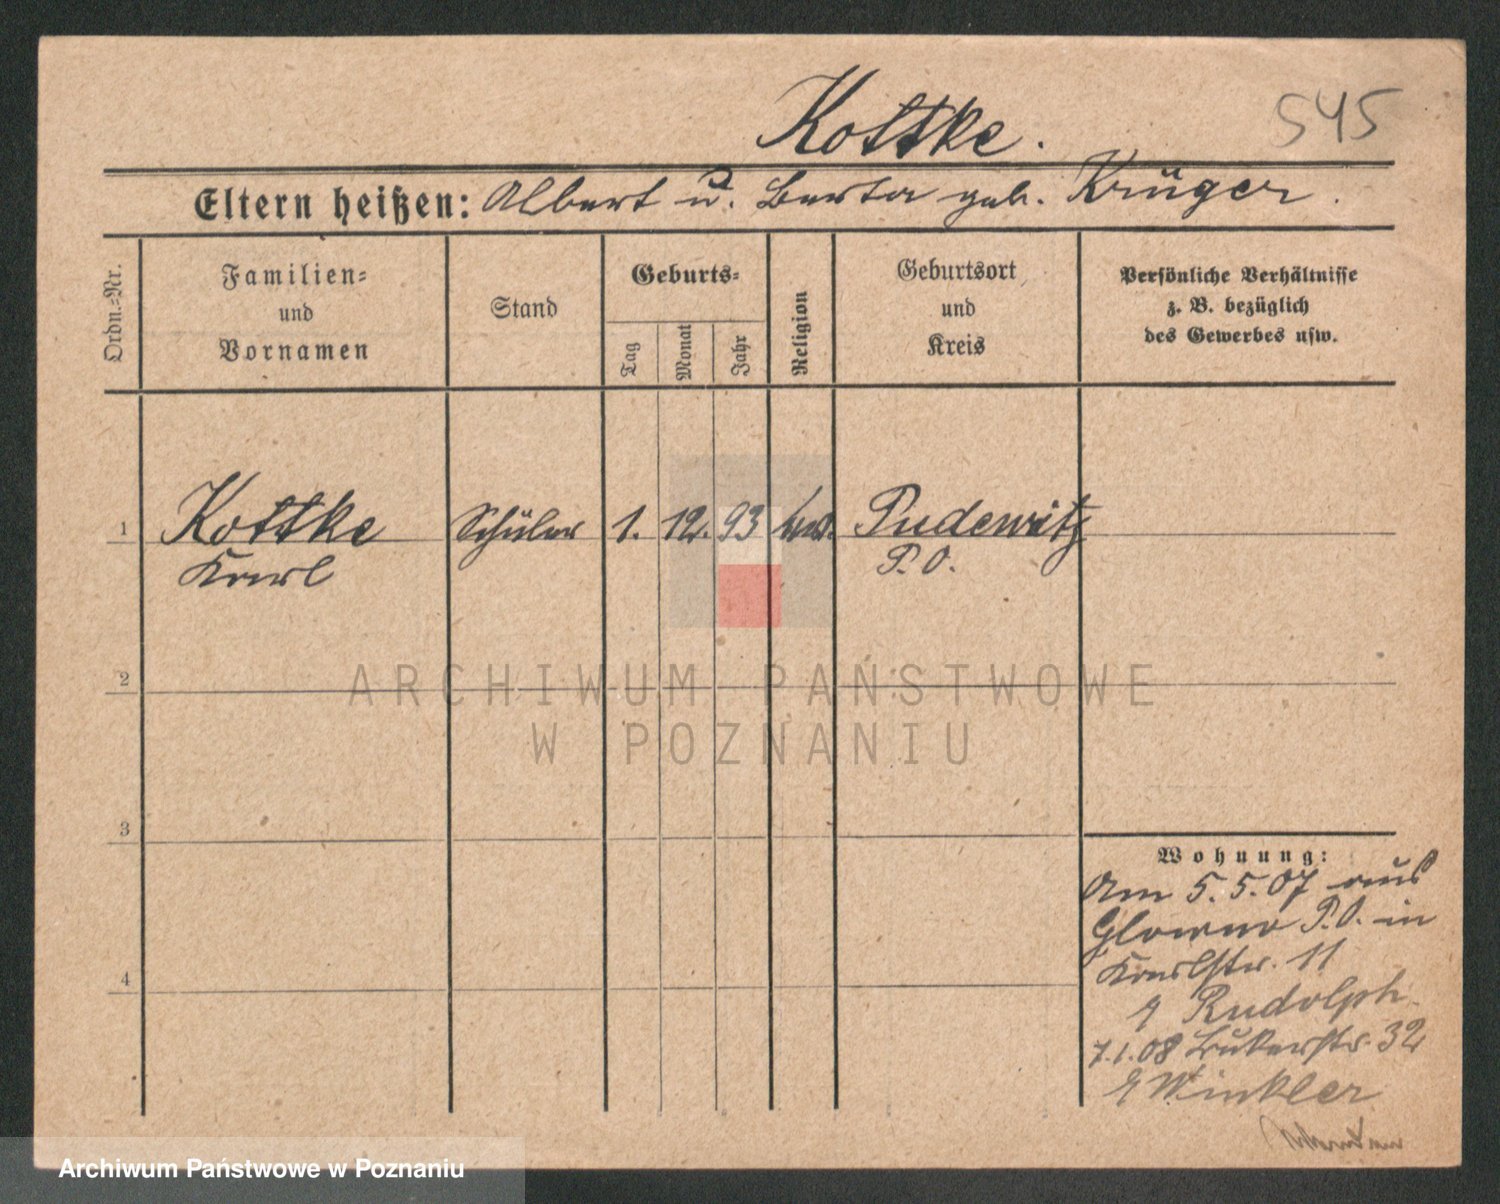 Kottke.
545
Eltern heißen: Albert u. Berta geb. Krüger.
Ordn.-Nr.
Familien-
und
Vornamen
Stand
Geburts-
Tag
Monat
Jahr
Religion
Geburtsort
und
Kreis
Persönliche Verhältnisse
z. B. bezüglich
des Gewerbes usw.
1 Kottke Schüler 1. 12. 93 ev. Pudewitz
Karl P. O.
2
3
4
Wohnung:
Am 5. 5. 07 aus
Glowno P. O. in
Karlstr. 11
Rudolph
7.1.08 Bukerstr. 32
Winkler
ARCHIWUM PAŃSTWOWE
W POZNANIU
Archiwum Państwowe w Poznaniu